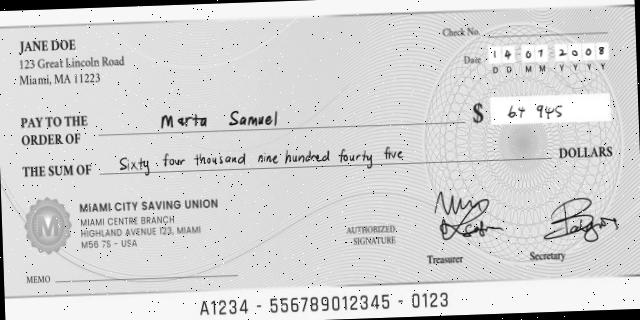 Check No.
JANE DOE
123 Great Lincoln Road
Miami, MA 11223
Date 14 07 2008
D D M M Y Y Y Y
PAY TO THE
ORDER OF Marta Samuel $ 64 945
THE SUM OF Sixty four thousand nine hundred fourty five DOLLARS
M
MIAMI CITY SAVING UNION
MIAMI CENTRE BRANCH
HIGHLAND AVENUE 123, MIAMI
M56 7S - USA
AUTHORIZED
SIGNATURE
Treasurer Secretary
MEMO
A1234 - 556789012345 - 0123